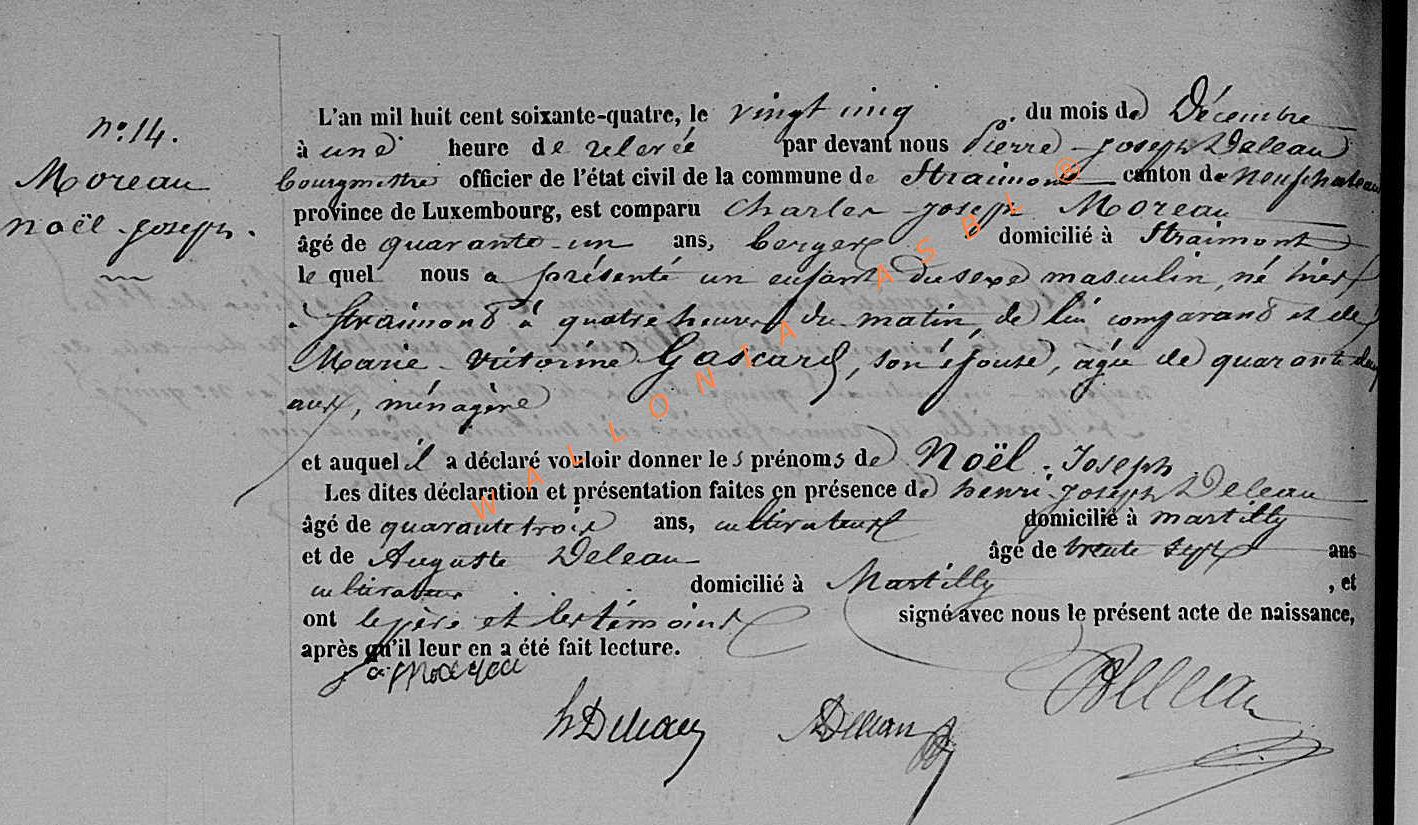 n° 14.
Moreau
Noël-Joseph.
L'an mil huit cent soixante-quatre, le vingt cinq du mois de Décembre
à une heure de relevée par devant nous Pierre-Joseph Deleau
bourgmestre officier de l'état civil de la commune de Straimont canton de Neufchateau
province de Luxembourg, est comparu Charles-Joseph Moreau
âgé de quarante-un ans, berger domicilié à Straimont
lequel nous a présenté un enfant du sexe masculin, né hier
à Straimont à quatre heures du matin, de lui comparant et de
Marie-Victorine Gascard, son épouse, agée de quarante deux
ans, ménagère
et auquel il a déclaré vouloir donner les prénoms de Noël-Joseph
Les dites déclaration et présentation faites en présence de henri-Joseph Deleau
âgé de quarante trois ans, cultivateur domicilié à Martilly
et de Auguste Deleau âgé de trente sept ans
cultivateur domicilié à Martilly, et
ont le père et les témoins signé avec nous le présent acte de naissance,
après qu'il leur en a été fait lecture.
hDeleau ADeleau Deleau
WALLONIA ASBL ®